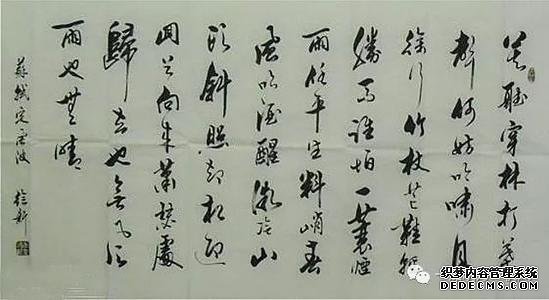 莫聽穿林打葉
聲何妨吟嘯且
徐行竹杖芒鞋輕
勝馬誰怕一蓑煙
雨任平生料峭春
風吹酒醒微冷山
頭斜照却相迎
回首向来蕭瑟處
歸去也無風
雨也無晴
蘇軾定風波
织梦内容管理系统
DEDECMS.COM